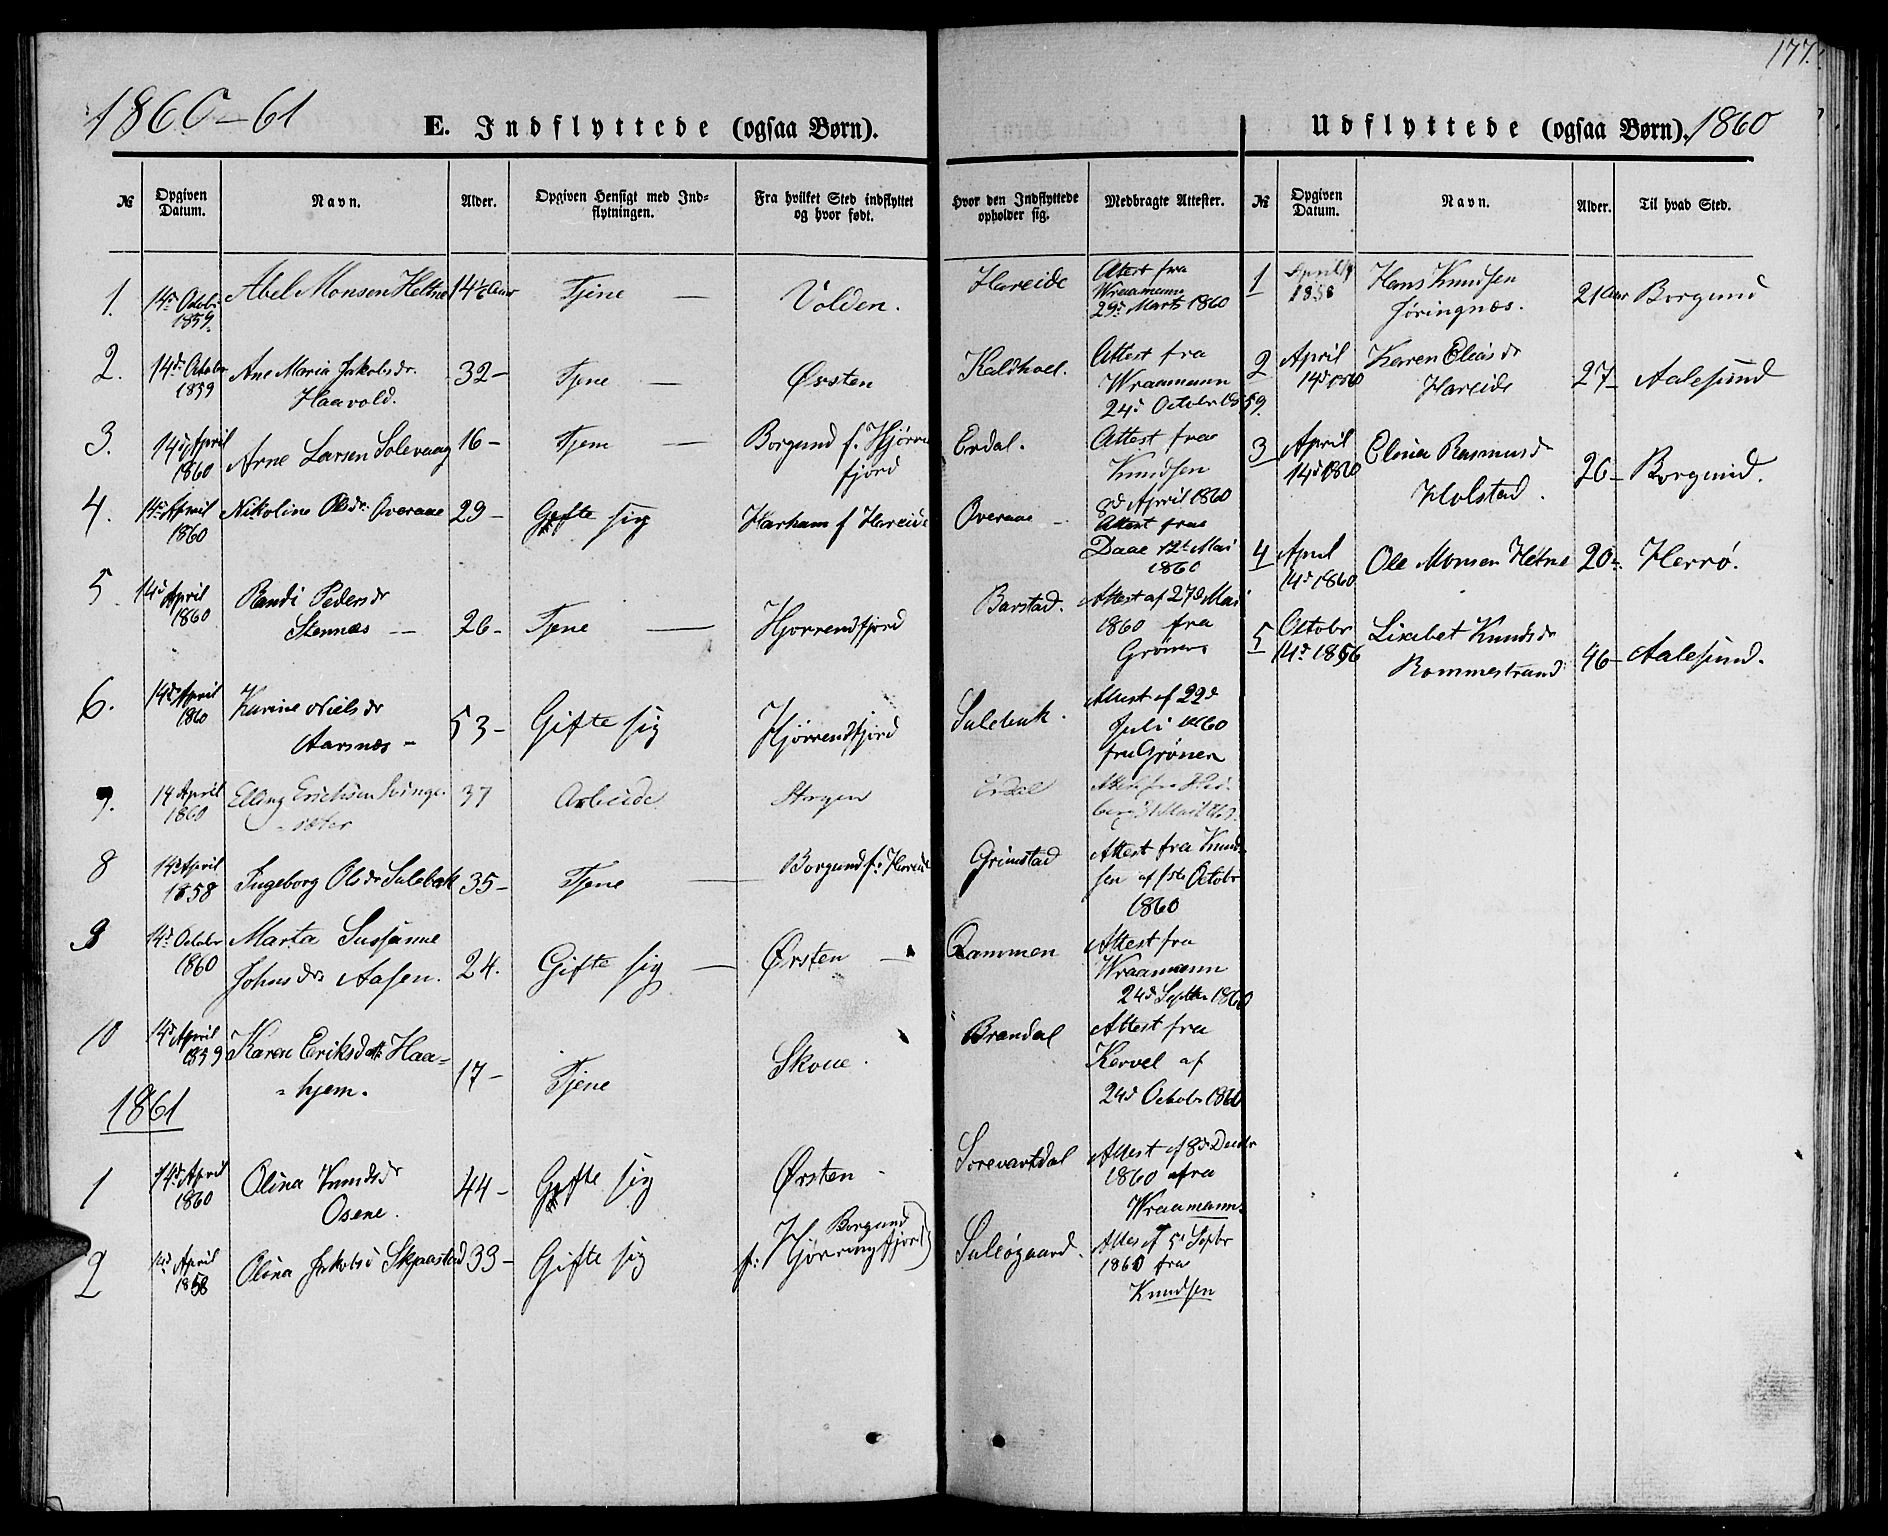 177.
1860-61
E. Indflyttede (ogsaa Børn).
Udflyttede (ogsaa Børn). 1860
№ Opgiven Datum. Navn. Alder. Opgiven Hensigt med Indflytningen. Fra hvilket Sted indflyttet og hvor født. Hvor den Indflyttede opholder sig. Medbragte Attester.
№ Opgiven Datum. Navn. Alder. Til hvad Sted.
1. 14de Octobr 1859. Abel Monsen Hettne 14½ Aar Tjene — Volden. Hareide Attest fra Wraamann 29de Marts 1860
2. 14de Octobr 1859 Ane Maria Jakobsdr. Haavold. 32- Tjene — Ørsten Kaldhol. Attest fra Wraamann 24d Octobr 1859.
3. 14de April 1860 Arne Larsen Solevaag 16- Tjene — Borgund f. Hjørrendfjord Erdal. Attest fra Knudsen 8d April 1860
4. 14de April 1860 Nikoline Olsdr Overaae 29- Gifte sig Harham f Hareide Overaae - Attest fra Daae 12t Mai 1860
5. 14d April 1860 Randi Pedersdr Stennæs - 26- Tjene — Hjorrendfjord Barstad. Attest af 27d Mai 1860 fra Grøner
6. 14de April 1860 Karine Nielsdr Aarsnæs - 53- Gifte sig Hjørrendfjord Sulebak. Attest af 22d Juli 1860 fra Grøner
7. 14 April 1860 Elling Erichsen 37 Arbeide Stryn Erdal Attest fra
8 14d April 1858 Ingeborg Olsdr Sulebak 35- Tjene — Borgund f. Hareide Grimstad Attest fra Knudsen af 1ste Octobr 1860
9 14d Octobr 1860 Marta Sussanne Johnsdr Aasen. 24. Gifte sig — Ørsten - Qammen Attest fra Wraamann 24d Septbr 1860
10 14d April 1859 Karen Eriksdttr Haahjem. 17- Tjene Skoue. Brandal Attest fra Kervel af 24d Octobr 1860
1861
1 14d April 1860 Olina Knudsdr Osene. 44- Gifte sig Ørsten - Sorevartdal Attest af 8d Decbr 1860 fra Wraamann.
2 14d April 1858 Olina Jakobsd Skjaastad 33- Gifte sig Borgund f: Hjørringfjord) Suleøgaard. Attest af 5d Septbr 1860 fra Knudsen
1 April 14 1858 Hans Knudsen Jøringnæs. 21 Aar Borgund
2 April 14d 1860 Karen Eliasdr Hareide 27- Aalesund
3 April 14d 1860 Elena Rasmusdr Holstad. 26- Borgund.
4 April 14d 1860. Ole Monsen Hetne 20- Herrø.
5 Octobr 14d 1856 Lisabet Knudsdr Rommestrand 46- Aalesund.